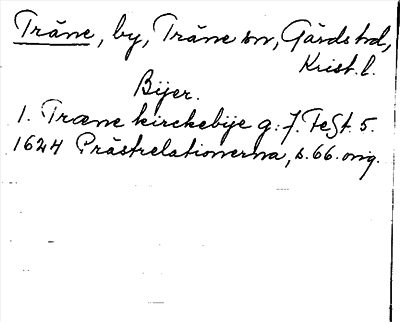 Träne, by, Träne sn, Gärds hd,
Krist. l.
Bijer.
1. Træne kirckebije g: 7. Fest. 5.
1624 Prästrelationerna, s. 66. orig.